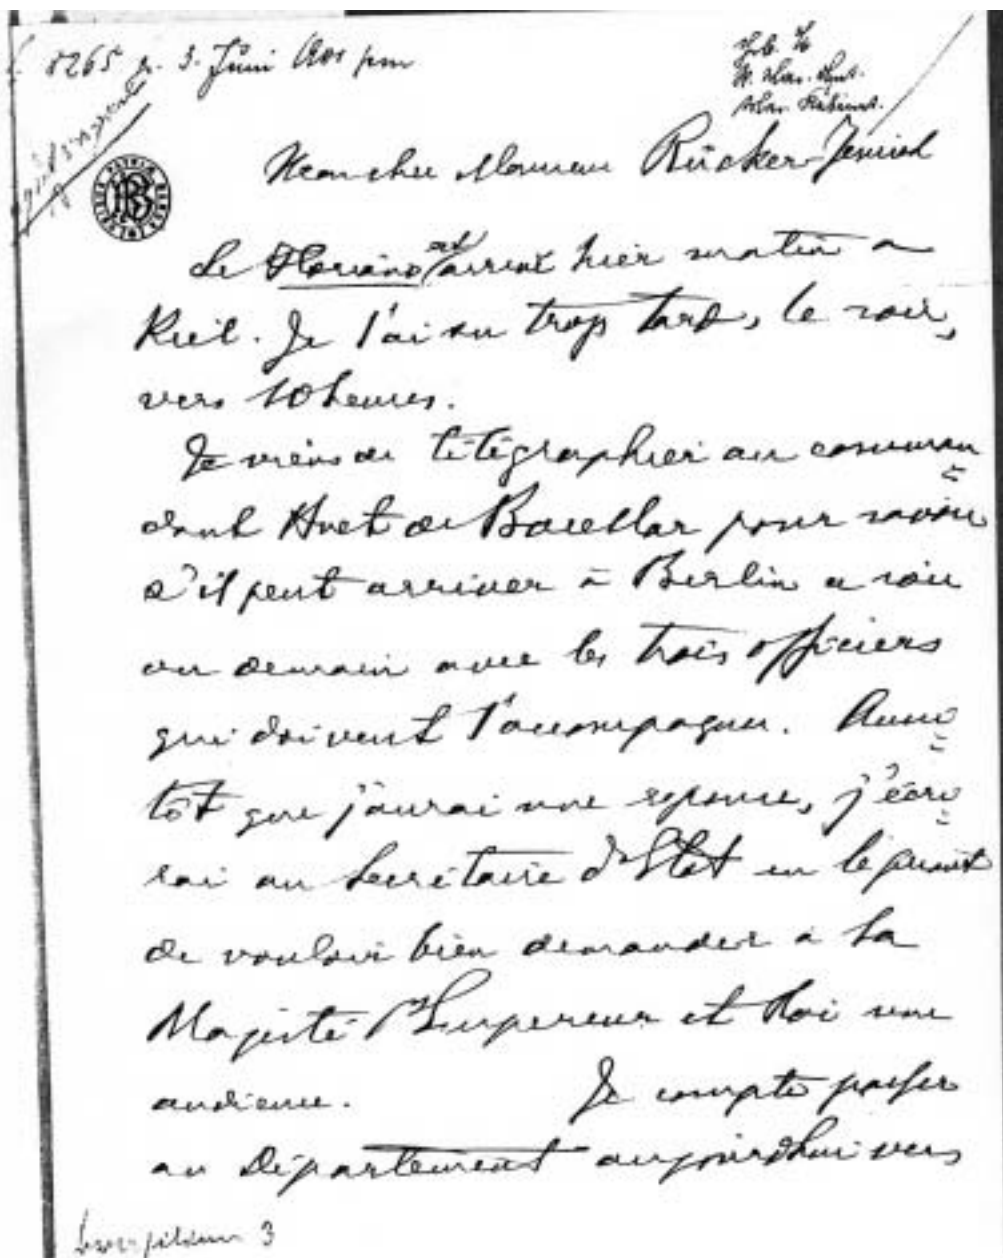 8265 pr. 3. Juni 1901 pm
Mon cher Monsieur Rücker-Jenisch
Le Floriano est arrivé hier matin a
Kiel. Je l'ai su trop tard, le soir,
vers 10 heures.
Je viens de télégraphier au comman
dant Huet de Bacellar pour savoir
s'il peut arriver à Berlin ce soir
ou demain avec les trois officiers
qui doivent l'accompagner. Aussi
tôt que j'aurai une reponse, j'écri
rai au Secrétaire d'Etat en le priant
de vouloir bien demander a Sa
Majesté l'Empereur et Roi une
audience. Je compte passer
au Département aujourdhui vers
3